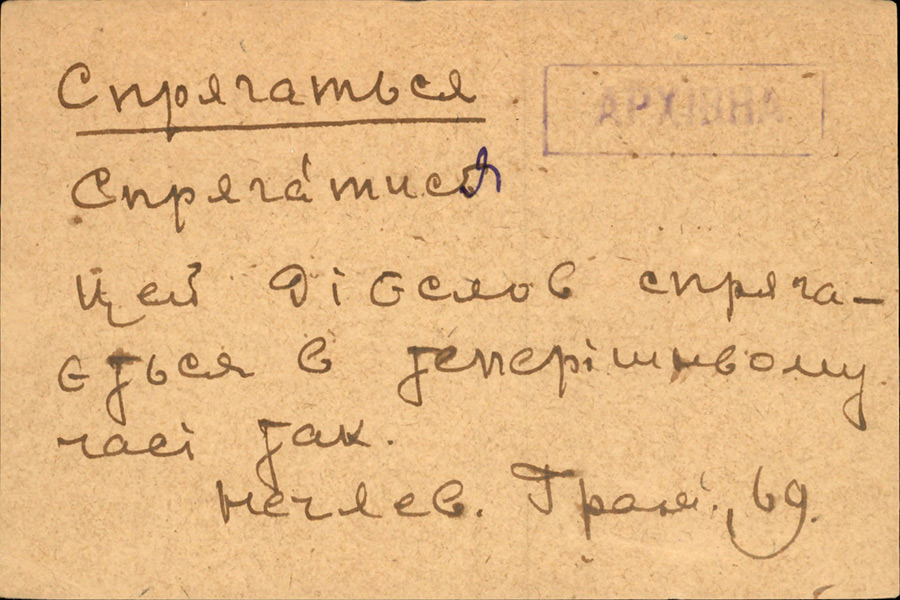 Спрягаться
АРХІВНА
Спряга́тися
Цей дієслов спряга-
ється в теперішньому
часі так.
Нечуев. Грам., 69.